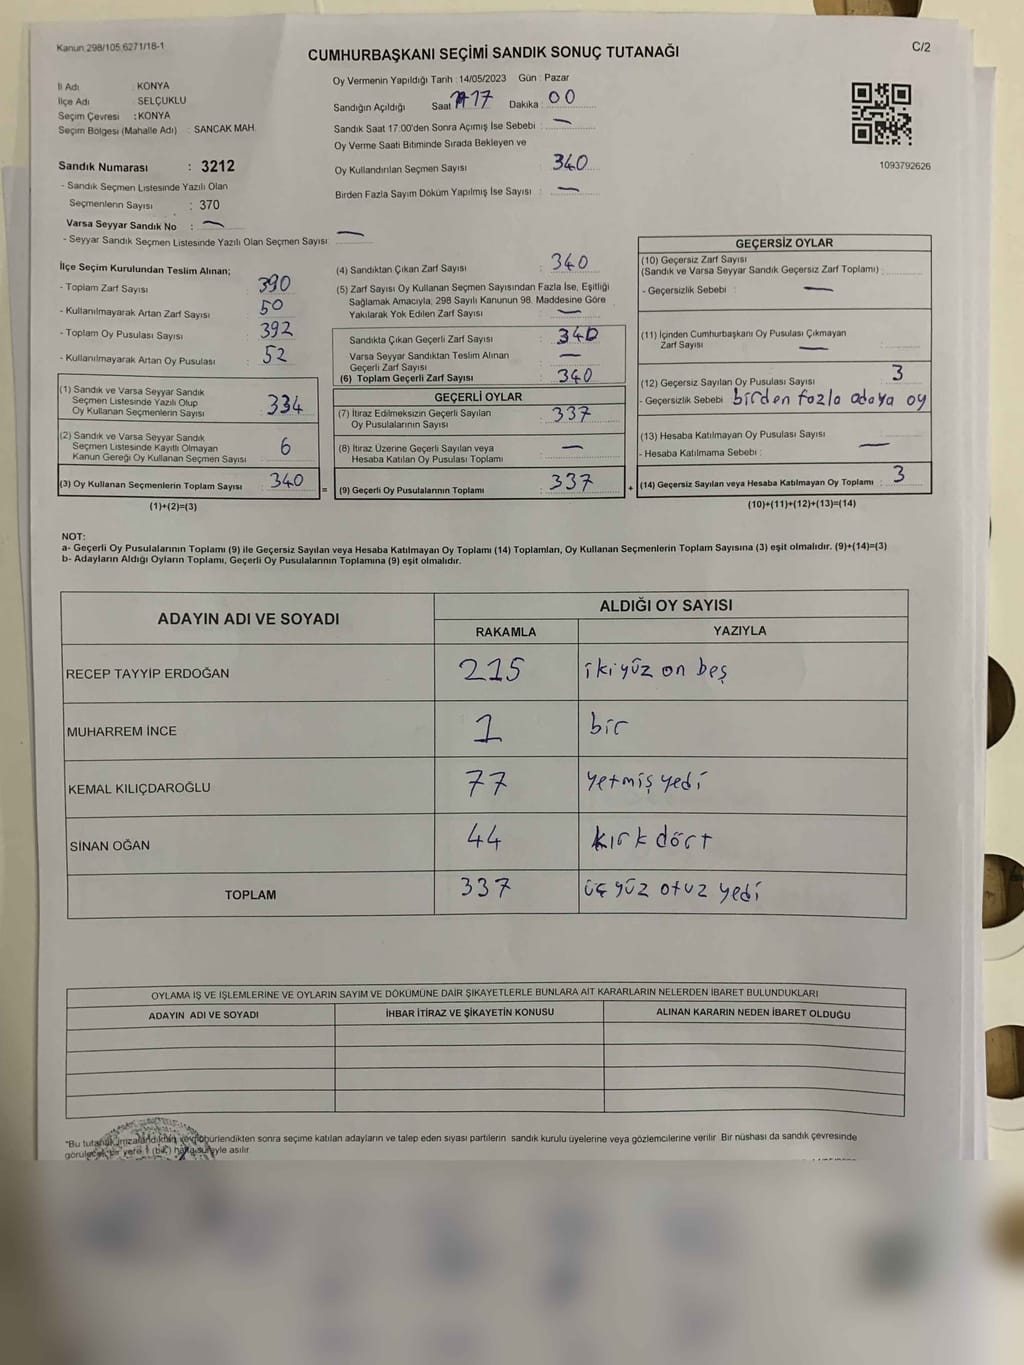 Kanun 298/105,6271/18-1
CUMHURBAŞKANI SEÇİMİ SANDIK SONUÇ TUTANAĞI
C/2
İl Adı : KONYA
İlçe Adı : SELÇUKLU
Seçim Çevresi : KONYA
Seçim Bölgesi (Mahalle Adı) : SANCAK MAH.
Sandık Numarası : 3212
- Sandık Seçmen Listesinde Yazılı Olan
Seçmenlerin Sayısı : 370
Varsa Seyyar Sandık No : —
- Seyyar Sandık Seçmen Listesinde Yazılı Olan Seçmen Sayısı: —
Oy Vermenin Yapıldığı Tarih : 14/05/2023 Gün : Pazar
Sandığın Açıldığı Saat 17 Dakika : 00
Sandık Saat 17.00'den Sonra Açımış İse Sebebi : —
Oy Verme Saati Bitiminde Sırada Bekleyen ve
Oy Kullandırılan Seçmen Sayısı : 340
Birden Fazla Sayım Döküm Yapılmış İse Sayısı : —
1093792626
İlçe Seçim Kurulundan Teslim Alınan;
- Toplam Zarf Sayısı : 390
- Kullanılmayarak Artan Zarf Sayısı : 50
- Toplam Oy Pusulası Sayısı : 392
- Kullanılmayarak Artan Oy Pusulası : 52
(1) Sandık ve Varsa Seyyar Sandık
Seçmen Listesinde Yazılı Olup
Oy Kullanan Seçmenlerin Sayısı : 334
(2) Sandık ve Varsa Seyyar Sandık
Seçmen Listesinde Kayıtlı Olmayan
Kanun Gereği Oy Kullanan Seçmen Sayısı : 6
(3) Oy Kullanan Seçmenlerin Toplam Sayısı : 340
(1)+(2)=(3)
(4) Sandıktan Çıkan Zarf Sayısı : 340
(5) Zarf Sayısı Oy Kullanan Seçmen Sayısından Fazla İse, Eşitliği
Sağlamak Amacıyla, 298 Sayılı Kanunun 98. Maddesine Göre
Yakılarak Yok Edilen Zarf Sayısı : —
Sandıkta Çıkan Geçerli Zarf Sayısı : 340
Varsa Seyyar Sandıktan Teslim Alınan
Geçerli Zarf Sayısı : —
(6) Toplam Geçerli Zarf Sayısı : 340
GEÇERLİ OYLAR
(7) İtiraz Edilmeksizin Geçerli Sayılan
Oy Pusulalarının Sayısı : 337
(8) İtiraz Üzerine Geçerli Sayılan veya
Hesaba Katılan Oy Pusulası Toplamı : —
= (9) Geçerli Oy Pusulalarının Toplamı : 337
GEÇERSİZ OYLAR
(10) Geçersiz Zarf Sayısı
(Sandık ve Varsa Seyyar Sandık Geçersiz Zarf Toplamı) :
- Geçersizlik Sebebi : —
(11) İçinden Cumhurbaşkanı Oy Pusulası Çıkmayan
Zarf Sayısı : —
(12) Geçersiz Sayılan Oy Pusulası Sayısı : 3
- Geçersizlik Sebebi : birden fazla adaya oy
(13) Hesaba Katılmayan Oy Pusulası Sayısı : —
- Hesaba Katılmama Sebebi :
+ (14) Geçersiz Sayılan veya Hesaba Katılmayan Oy Toplamı : 3
(10)+(11)+(12)+(13)=(14)
NOT:
a- Geçerli Oy Pusulalarının Toplamı (9) ile Geçersiz Sayılan veya Hesaba Katılmayan Oy Toplamı (14) Toplamları, Oy Kullanan Seçmenlerin Toplam Sayısına (3) eşit olmalıdır. (9)+(14)=(3)
b- Adayların Aldığı Oyların Toplamı, Geçerli Oy Pusulalarının Toplamına (9) eşit olmalıdır.
ADAYIN ADI VE SOYADI ALDIĞI OY SAYISI
RAKAMLA YAZIYLA
RECEP TAYYİP ERDOĞAN 215 iki yüz on beş
MUHARREM İNCE 1 bir
KEMAL KILIÇDAROĞLU 77 yetmiş yedi
SİNAN OĞAN 44 kırk dört
TOPLAM 337 üç yüz otuz yedi
OYLAMA İŞ VE İŞLEMLERİNE VE OYLARIN SAYIM VE DÖKÜMÜNE DAİR ŞİKAYETLERLE BUNLARA AİT KARARLARIN NELERDEN İBARET BULUNDUKLARI
ADAYIN ADI VE SOYADI İHBAR İTİRAZ VE ŞİKAYETİN KONUSU ALINAN KARARIN NEDEN İBARET OLDUĞU
"Bu tutanak imzalandıktan ve mühürlendikten sonra seçime katılan adayların ve talep eden siyasi partilerin sandık kurulu üyelerine veya gözlemcilerine verilir. Bir nüshası da sandık çevresinde
görülecek bir yere 1 (bir) hafta süreyle asılır.